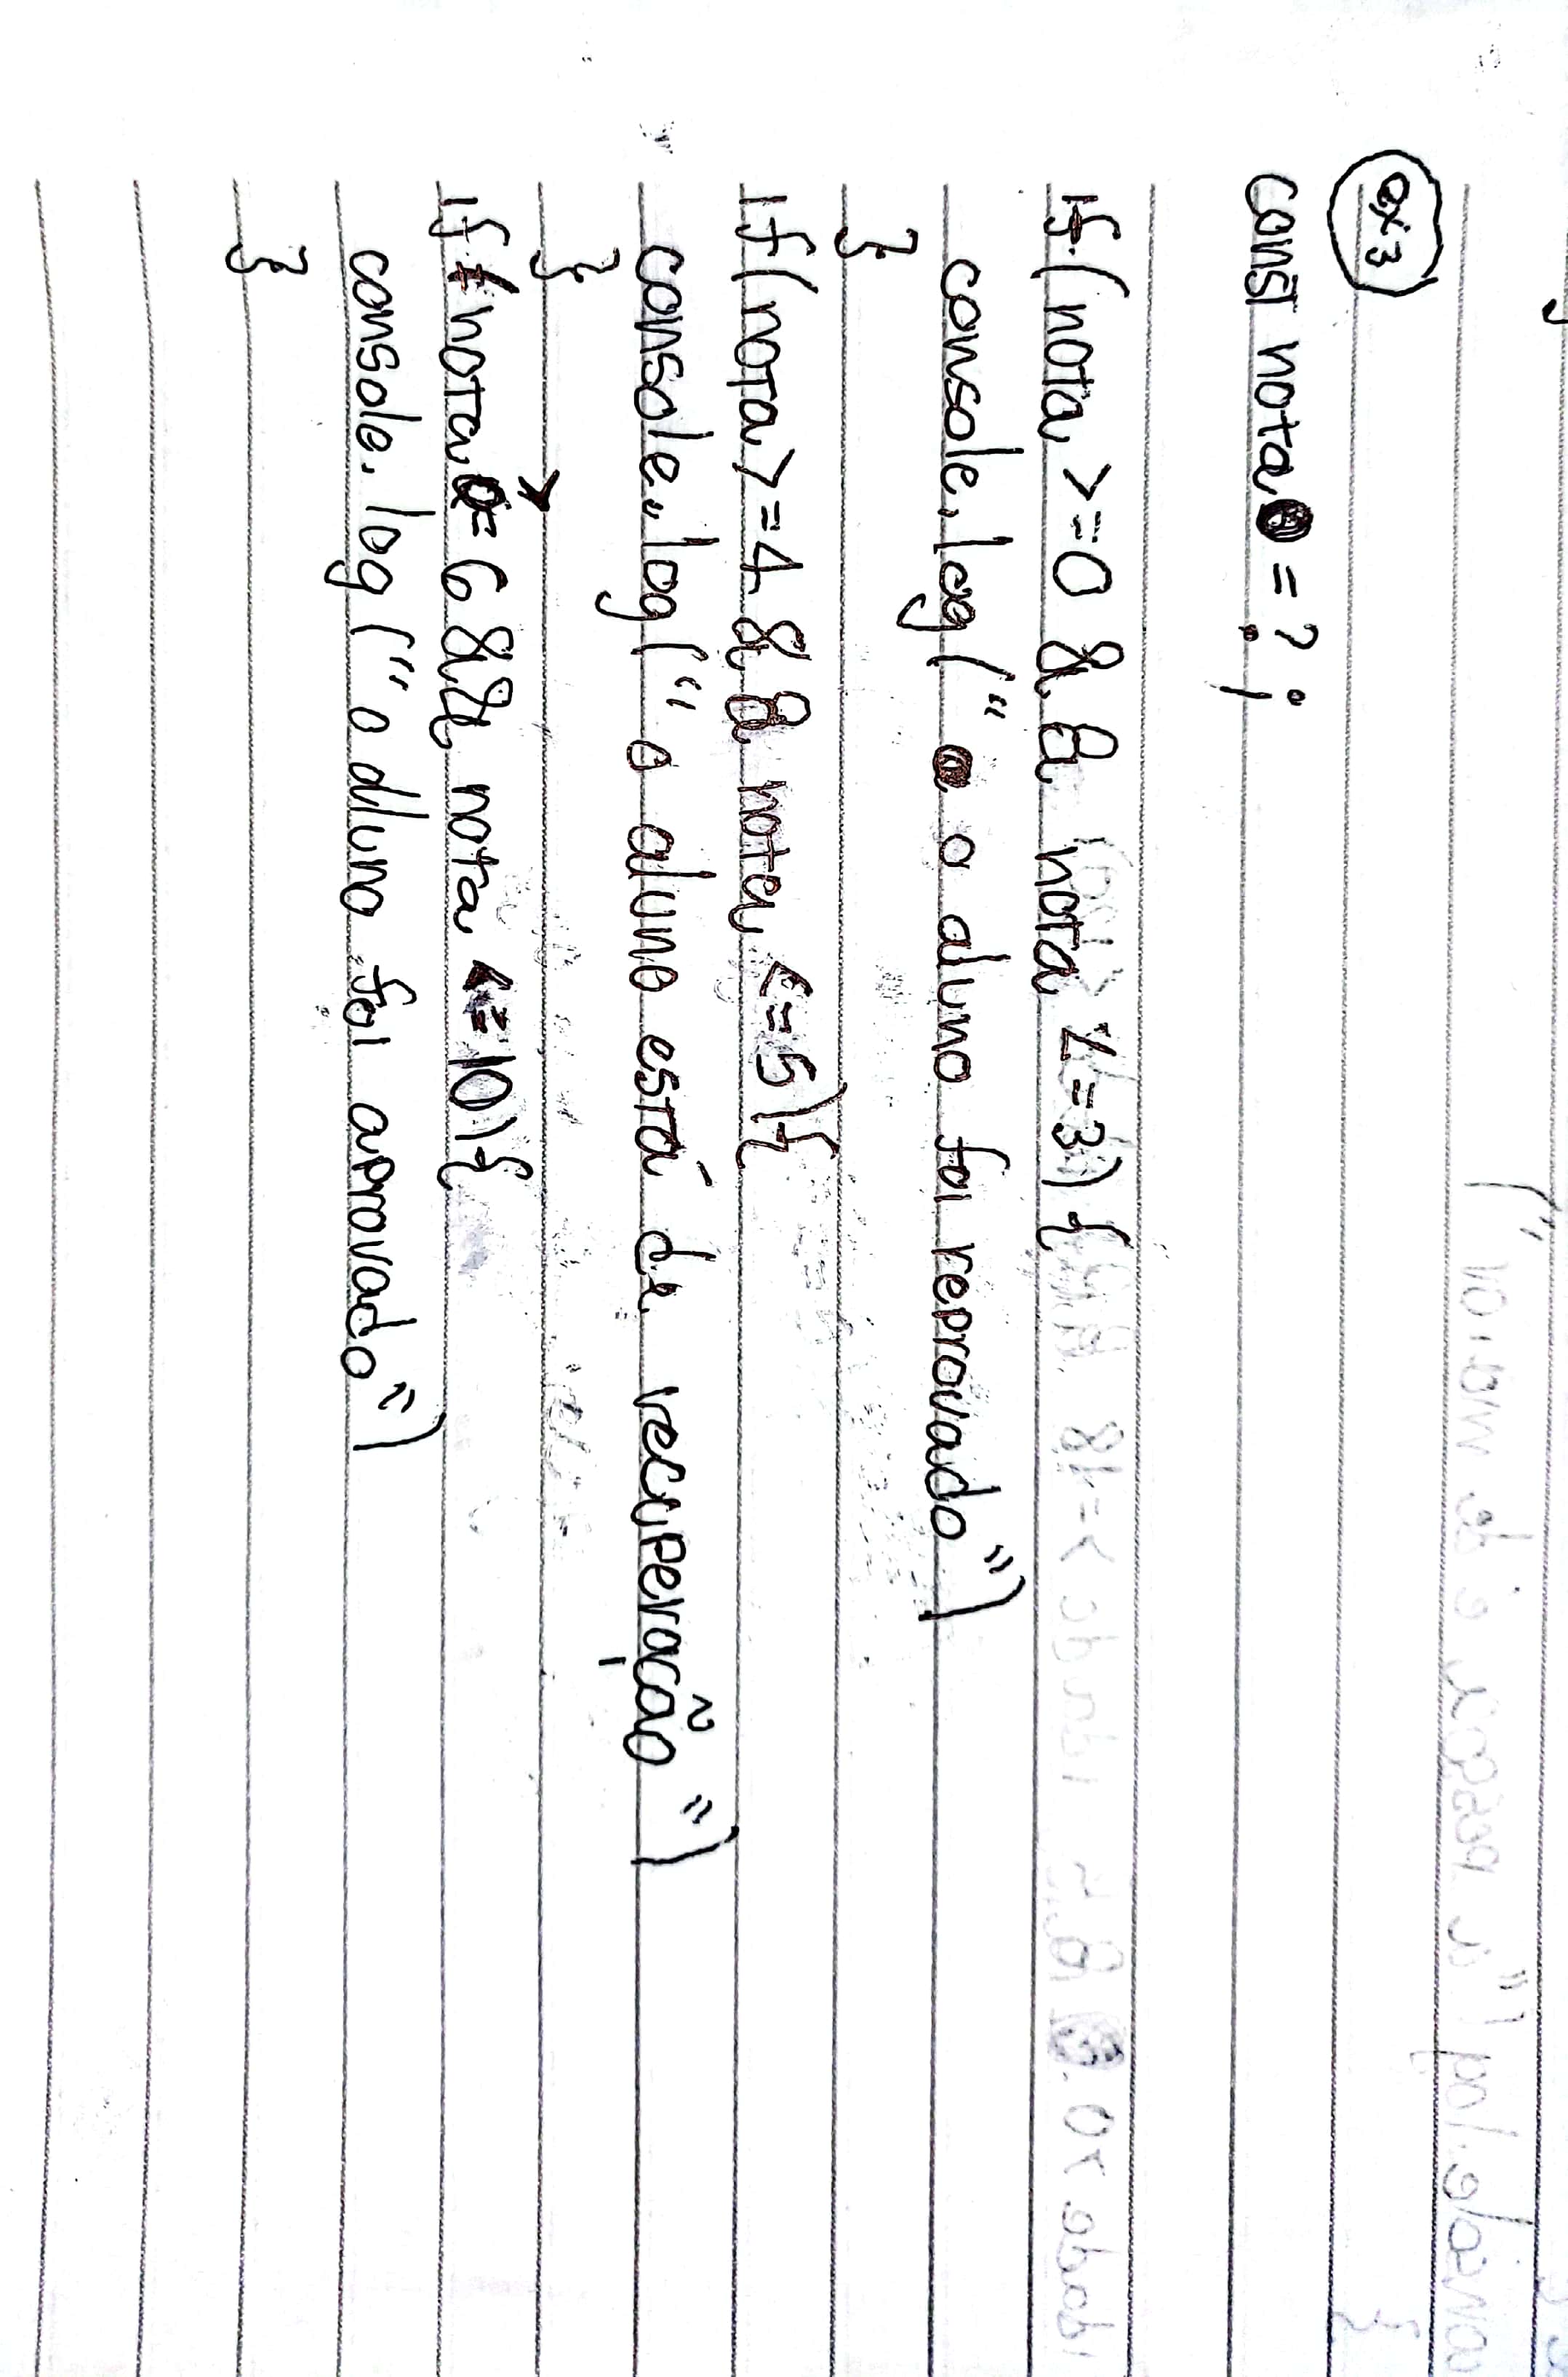 ex3
const nota = ?;
if (nota >= 0 && nota <= 3) {
console.log (" o aluno foi reprovado")
}
if (nota >= 4 && nota <= 5) {
console.log (" o aluno está de recuperação ")
}
if (nota >= 6 && nota <= 10) {
console.log (" o aluno foi aprovado")
}